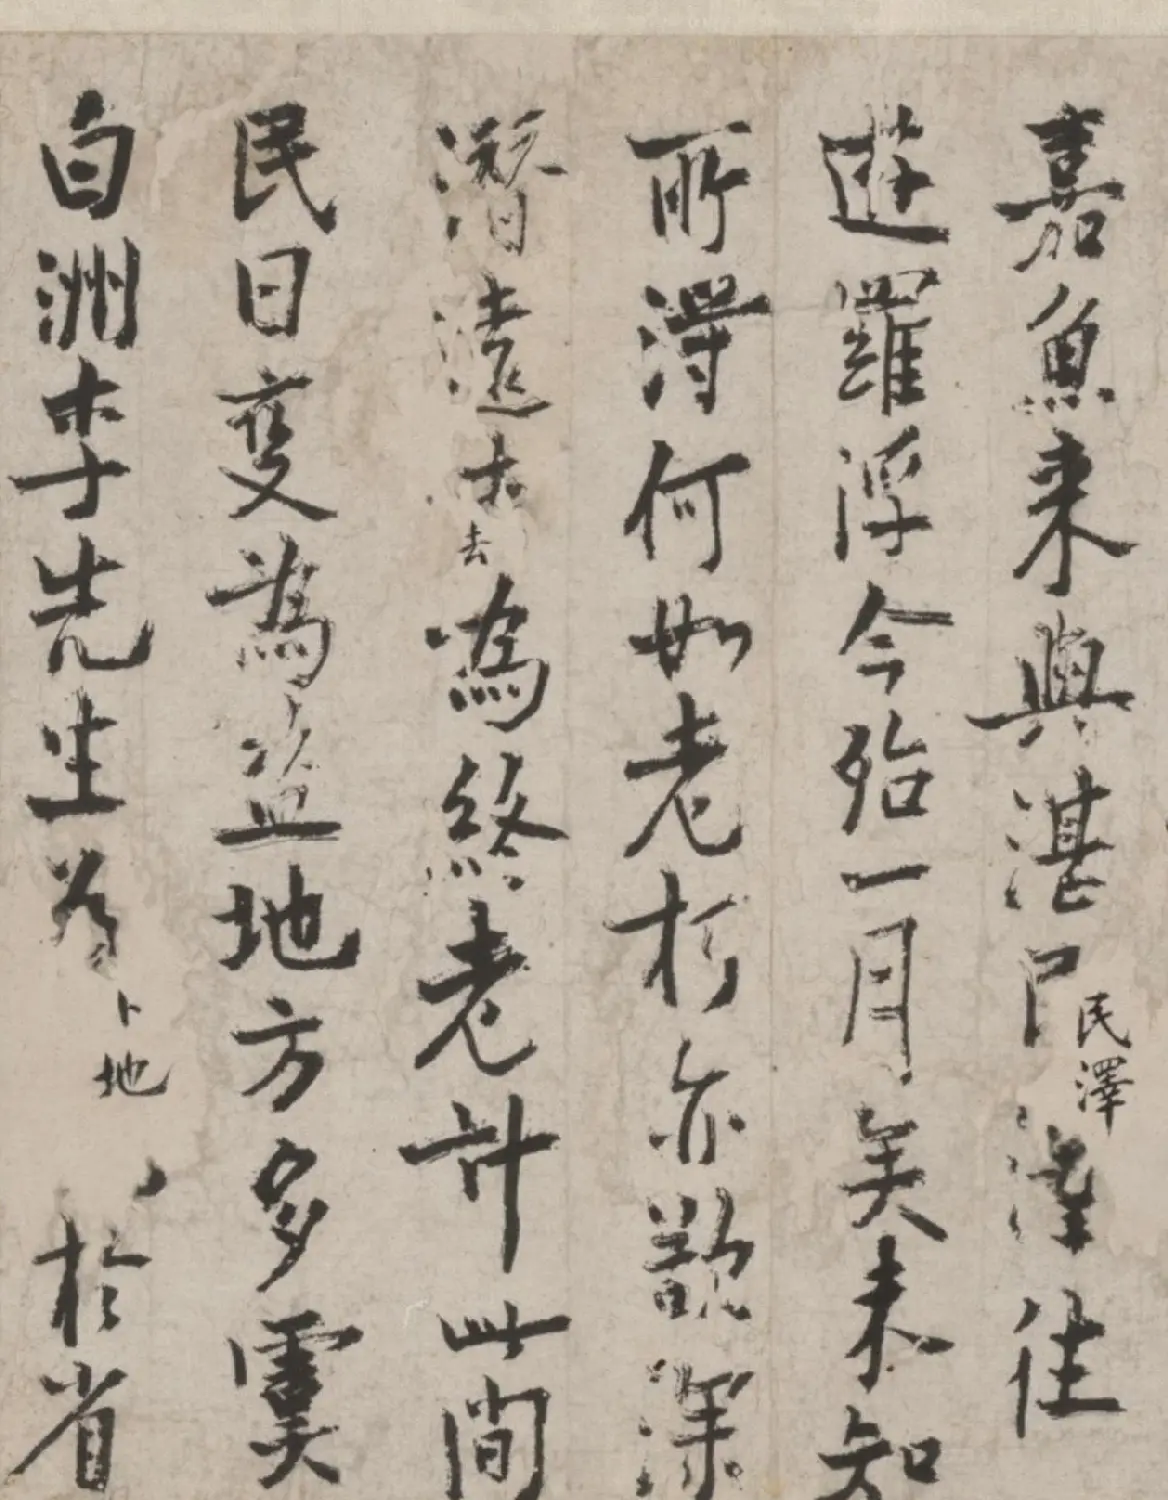 嘉魚来與湛民澤往
遊羅浮今殆一月矣未知
所得何如老朽亦欲深
潛遠去為終老計此間
民日变為盗地方多虞
白洲李先生為卜地於省